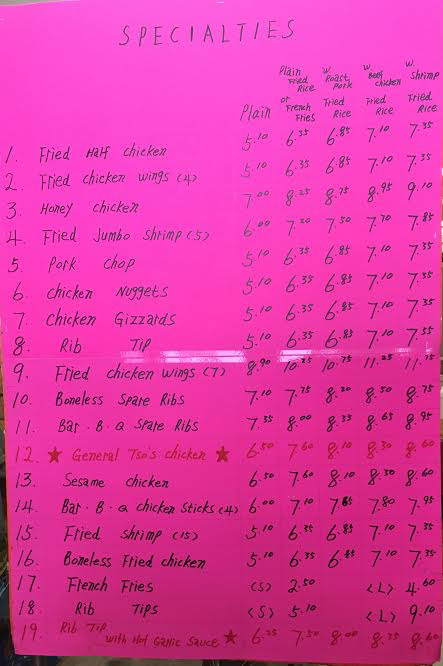 SPECIALTIES
Plain
Plain Fried Rice or French Fries
w. Roast Pork Fried Rice
w. Beef chicken Fried Rice
w. Shrimp Fried Rice
1. Fried Half chicken 5.10 6.35 6.85 7.10 7.35
2. Fried chicken wings (4) 5.10 6.35 6.85 7.10 7.35
3. Honey chicken 7.00 8.25 8.75 8.95 9.10
4. Fried Jumbo Shrimp (5) 6.00 7.20 7.50 7.70 7.85
5. Pork chop 5.10 6.35 6.85 7.10 7.35
6. chicken Nuggets 5.10 6.35 6.85 7.10 7.35
7. chicken Gizzards 5.10 6.35 6.85 7.10 7.35
8. Rib Tip 5.10 6.35 6.85 7.10 7.35
9. Fried chicken wings (7) 8.90 10.25 10.75 11.25 11.75
10. Boneless Spare Ribs 7.10 7.75 8.20 8.50 8.75
11. Bar.B.Q Spare Ribs 7.35 8.00 8.35 8.65 8.95
12. ★ General Tso's chicken ★ 6.50 7.60 8.10 8.30 8.60
13. Sesame chicken 6.50 7.60 8.10 8.30 8.60
14. Bar.B.Q chicken Sticks (4) 6.00 7.10 7.65 7.80 7.95
15. Fried Shrimp (15) 5.10 6.35 6.85 7.10 7.35
16. Boneless Fried chicken 5.10 6.35 6.85 7.10 7.35
17. French Fries (S) 2.50 (L) 4.60
18. Rib Tips (S) 5.10 (L) 9.10
19. Rib Tip with Hot Garlic Sauce ★ 6.25 7.50 8.00 8.35 8.60